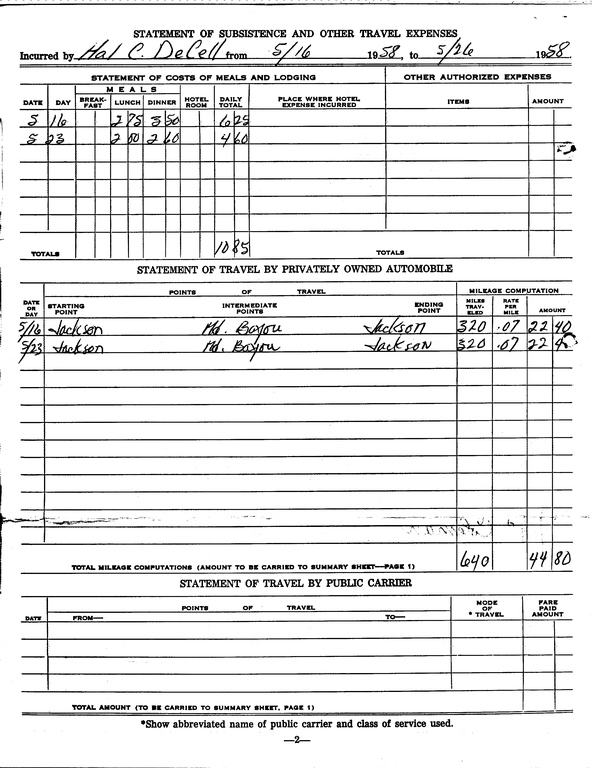 STATEMENT OF SUBSISTENCE AND OTHER TRAVEL EXPENSES
Incurred by Hal C. DeCell from 5/16 1958, to 5/26 1958
STATEMENT OF COSTS OF MEALS AND LODGING OTHER AUTHORIZED EXPENSES
DATE DAY MEALS BREAK-FAST LUNCH DINNER HOTEL ROOM DAILY TOTAL PLACE WHERE HOTEL EXPENSE INCURRED ITEMS AMOUNT
5 16 2 75 3 50 6 25
5 23 2 00 2 60 4 60
TOTALS 10 85 TOTALS
STATEMENT OF TRAVEL BY PRIVATELY OWNED AUTOMOBILE
POINTS OF TRAVEL MILEAGE COMPUTATION
DATE OR DAY STARTING POINT INTERMEDIATE POINTS ENDING POINT MILES TRAV-ELED RATE PER MILE AMOUNT
5/16 Jackson Md. Bayou Jackson 320 .07 22 40
5/23 Jackson Md. Bayou Jackson 320 .07 22
TOTAL MILEAGE COMPUTATIONS (AMOUNT TO BE CARRIED TO SUMMARY SHEET—PAGE 1) 640 44 80
STATEMENT OF TRAVEL BY PUBLIC CARRIER
POINTS OF TRAVEL
DATE FROM— TO— MODE OF * TRAVEL FARE PAID AMOUNT
TOTAL AMOUNT (TO BE CARRIED TO SUMMARY SHEET, PAGE 1)
*Show abbreviated name of public carrier and class of service used.
—2—